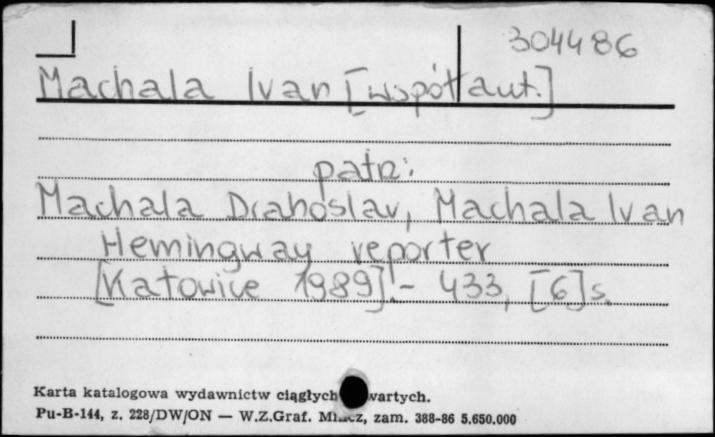 304486
Machala Ivan [współaut.]
patrz:
Machala Drahoslav, Machala Ivan
Hemingway reporter
[Katowice 1989].- 433, [6]s.
Karta katalogowa wydawnictw ciągłych
Pu-B-144, z. 228/DW/ON — W.Z.Graf. zam. 388-86 5.650.000